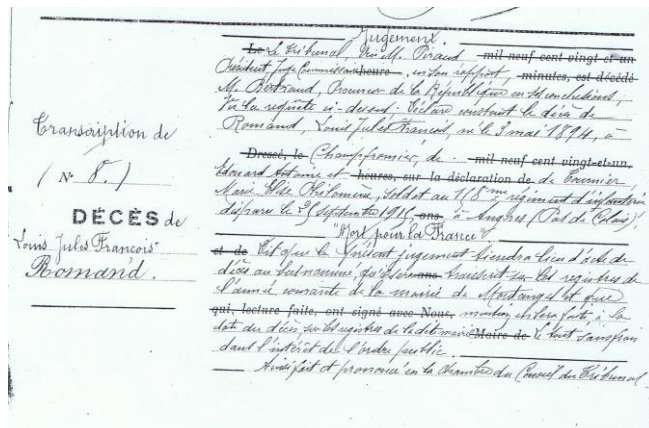 Transcription de
(N° 8.)
DÉCÈS de
Louis Jules François
Romand.
Jugement.
Le Le Tribunal Ouï M. Piraud mil neuf cent vingt et un
Président Juge Commissaire heure, en son rapport, minutes, est décédé
M. Bertrand, Procureur de la République en ses conclusions,
Vu la requête ci-dessus. Déclare constant le décès de
Romand, Louis Jules François, né le 3 mai 1894, à
Dressé, le Champfromier, de mil neuf cent vingt-et-un,
Edouard Antoine et heures, sur la déclaration de de Tournier,
Marie Elise Philomène, soldat au 158me régiment d'infanterie
disparu le 25 septembre 1915 ans à Angres (Pas de Calais),
"Mort pour la France"
et de Dit que le présent jugement tiendra lieu d'acte de
décès au susnommé, qu'il sera ans transcrit sur les registres de
l'année courante de la mairie de et que
qui, lecture faite, ont signé avec Nous, mention en sera faite, à la
date du décès, sur les registres de la dite mairie Maire de Le tout sans frais
dans l'intérêt de l'ordre public.
Ainsi fait et prononcé en la Chambre du Conseil du Tribunal